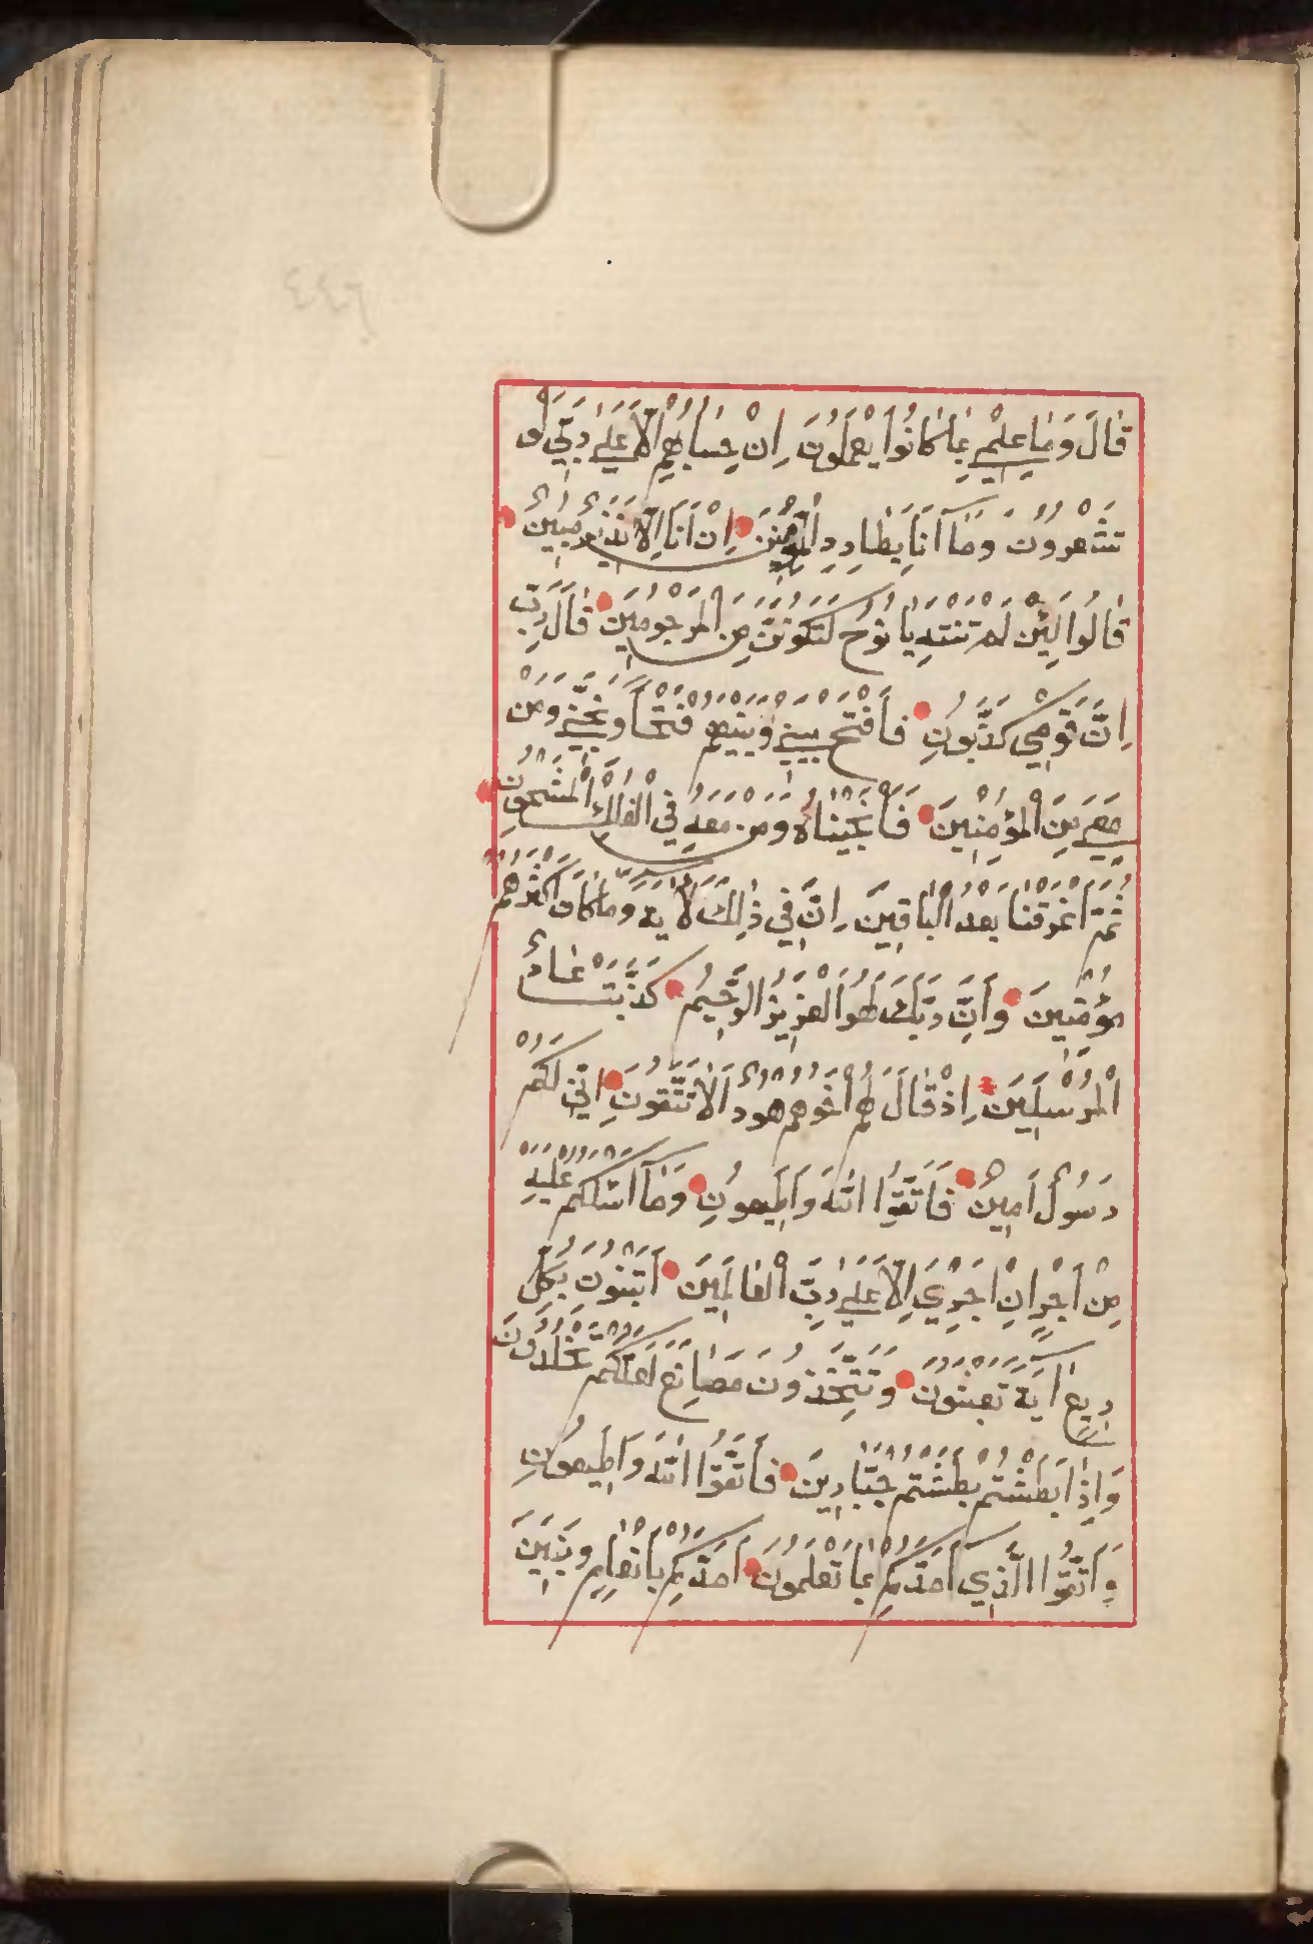 ٤٤٦
قَالَ وَمَا عِلْمِي بِمَا كَانُوا يَعْمَلُونَ اِنْ حِسَابُهُمْ اِلَّا عَلَىٰ رَبِّي لَوْ
تَشْعُرُونَ وَمَا اَنَا بِطَارِدِ الْمُؤْمِنِينَ اِنْ اَنَا اِلَّا نَذِيرٌ مُبِينٌ
قَالُوا لَئِنْ لَمْ تَنْتَهِ يَا نُوحُ لَتَكُونَنَّ مِنَ الْمَرْجُومِينَ قَالَ رَبِّ
اِنَّ قَوْمِي كَذَّبُونِ فَافْتَحْ بَيْنِي وَبَيْنَهُمْ فَتْحًا وَنَجِّنِي وَمَنْ
مَعِيَ مِنَ الْمُؤْمِنِينَ فَاَنْجَيْنَاهُ وَمَنْ مَعَهُ فِي الْفُلْكِ الْمَشْحُونِ
ثُمَّ اَغْرَقْنَا بَعْدُ الْبَاقِينَ اِنَّ فِي ذٰلِكَ لَاٰيَةً وَمَا كَانَ اَكْثَرُهُمْ
مُؤْمِنِينَ وَاِنَّ رَبَّكَ لَهُوَ الْعَزِيزُ الرَّحِيمُ كَذَّبَتْ عَادٌ
الْمُرْسَلِينَ اِذْ قَالَ لَهُمْ اَخُوهُمْ هُودٌ اَلَا تَتَّقُونَ اِنِّي لَكُمْ
رَسُولٌ اَمِينٌ فَاتَّقُوا اللّٰهَ وَاَطِيعُونِ وَمَا اَسْئَلُكُمْ عَلَيْهِ
مِنْ اَجْرٍ اِنْ اَجْرِيَ اِلَّا عَلَىٰ رَبِّ الْعَالَمِينَ اَتَبْنُونَ بِكُلِّ
رِيعٍ اٰيَةً تَعْبَثُونَ وَتَتَّخِذُونَ مَصَانِعَ لَعَلَّكُمْ تَخْلُدُونَ
وَاِذَا بَطَشْتُمْ بَطَشْتُمْ جَبَّارِينَ فَاتَّقُوا اللّٰهَ وَاَطِيعُونِ
وَاتَّقُوا الَّذِي اَمَدَّكُمْ بِمَا تَعْلَمُونَ اَمَدَّكُمْ بِاَنْعَامٍ وَبَنِينَ